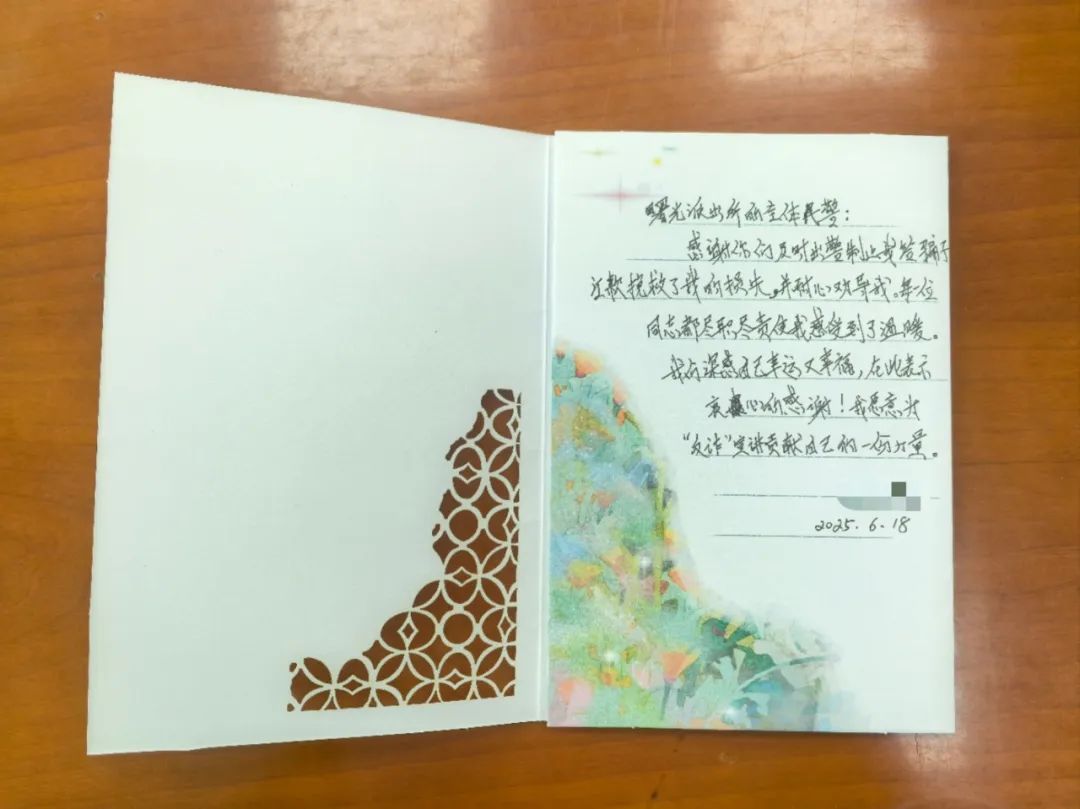 曙光派出所的全体民警：
感谢你们及时出警制止我给骗子
汇款挽救了我的损失。并耐心劝导我。每一位
同志都尽职尽责使我感受到了温暖。
我深感自己幸运又幸福，在此表示
衷心的感谢！我愿意为
“反诈”宣讲贡献自己的一份力量。
2025.6.18